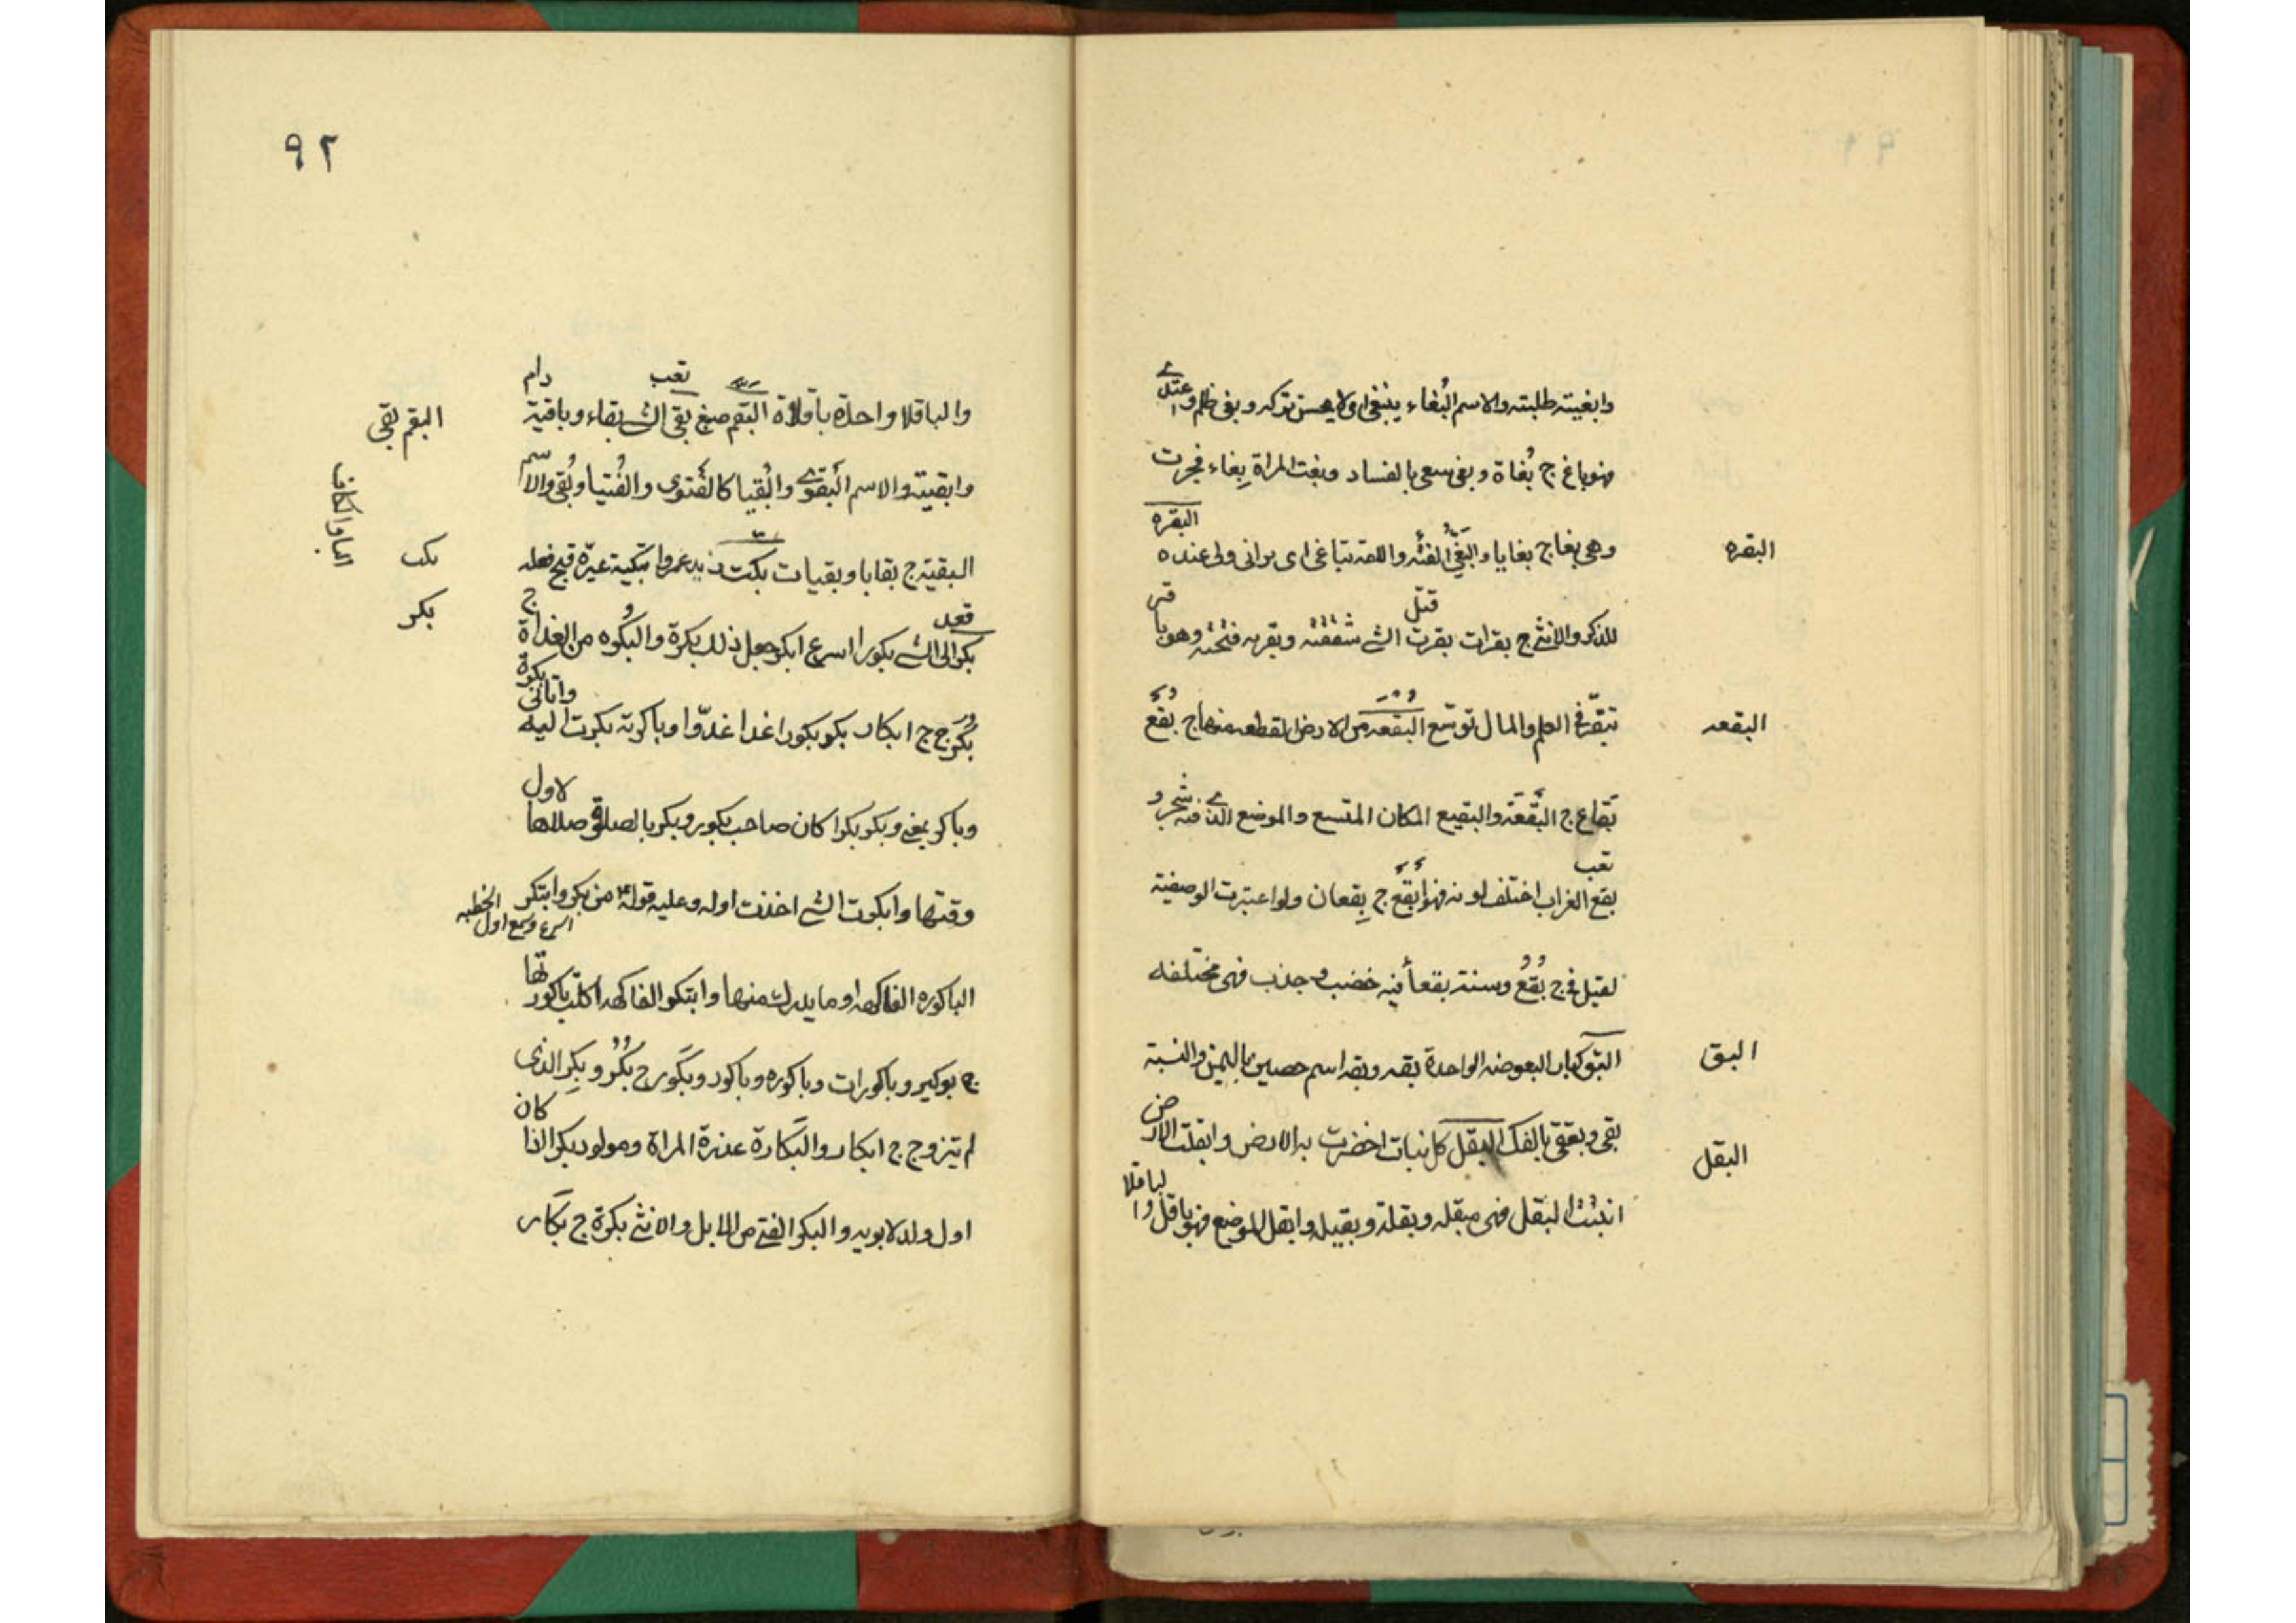 وابغيته طلبته والاسم البُغاء ينبغى اى لا يحسن تركه وبغى ظلم واعتدى
فهو باغ ج بُغاة وبغى سعى بالفساد وبغت المراة بِغاء فجرت
البقره
وهى بغا ج بغايا والبَغْىُ الفئه واللعه تباغى اى برانى ولى عنده
البقره
قتل
للذكر والانثى ج بقرات بقرت الشى شققته وبقربه فتحته وهو باقر
البقعه
تبقّر فى العلم والمال توسّع البُقعه من الارض القطعه منها ج بُقَع
بِقاع ج البَقْعَة والبقيع المكان المتسع والموضع الذى فيه شجر و
تعب
بقع الغراب اختلف لونه فهو أبْقَع ج بِقعان ولو اعتبرت الوصفية
لقيل فى ج بُقْع وسنة بقعأ فيه خضب وجذب فهى مختلفه
البق
البق كبار البعوضه الواحدة بقه وبقه اسم حصين باليمن والنسبة
البقل
بقى وبققى بالفك البقل كل نبات اخضرت به الارض وابقلت الارض
انبتت البقل فهى مبقله وبقلة وبقيله وابقل الموضع فهو باقل والباقلا
٩٢
تعب
والباقلا واحدة باقلاة البقم صبغ بقى الشى بقاء وباقية دام
البقم بقى
وابقيته والاسم البَقوى والبُقيا كالفَتوى والفُتيا وبُقى والاسم
الباء والكاف
البقية ج بقايا وبقيات بكت زيد عمروا تبكية عيّره قبح فعله
بكت
قعد
بكر الى الشى بكورا اسرع ابكر جعل ذلك بكرة والبكُوه من الغداة ج
بكر
بُكَر ج ج ابكار بكر بكورا غدا غدوّا وباكرته بكرت اليه واتانى بكرة
وباكر بمعنى وبكر بكرا كان صاحب بكور وبكر بالصلوة صلاها لاول
وقتها وابكرت الشى اخذت اوله وعليه قوله من بكر وابتكر
اسرع وسمع اول الخطبه
الباكوره الفاكهه او ما يدرك منها وابتكر الفاكهه اكلت باكورتها
ج بوكير وباكورات وباكوره وباكور وبكَور ج بُكُر وبِكر الذى
لم يتزوج ج ابكار والبَكارة عذرة المراة ومولود بكر اذا كان
اول ولد لابويه والبكر الفتى من الابل والانثى بكرة ج بكَار